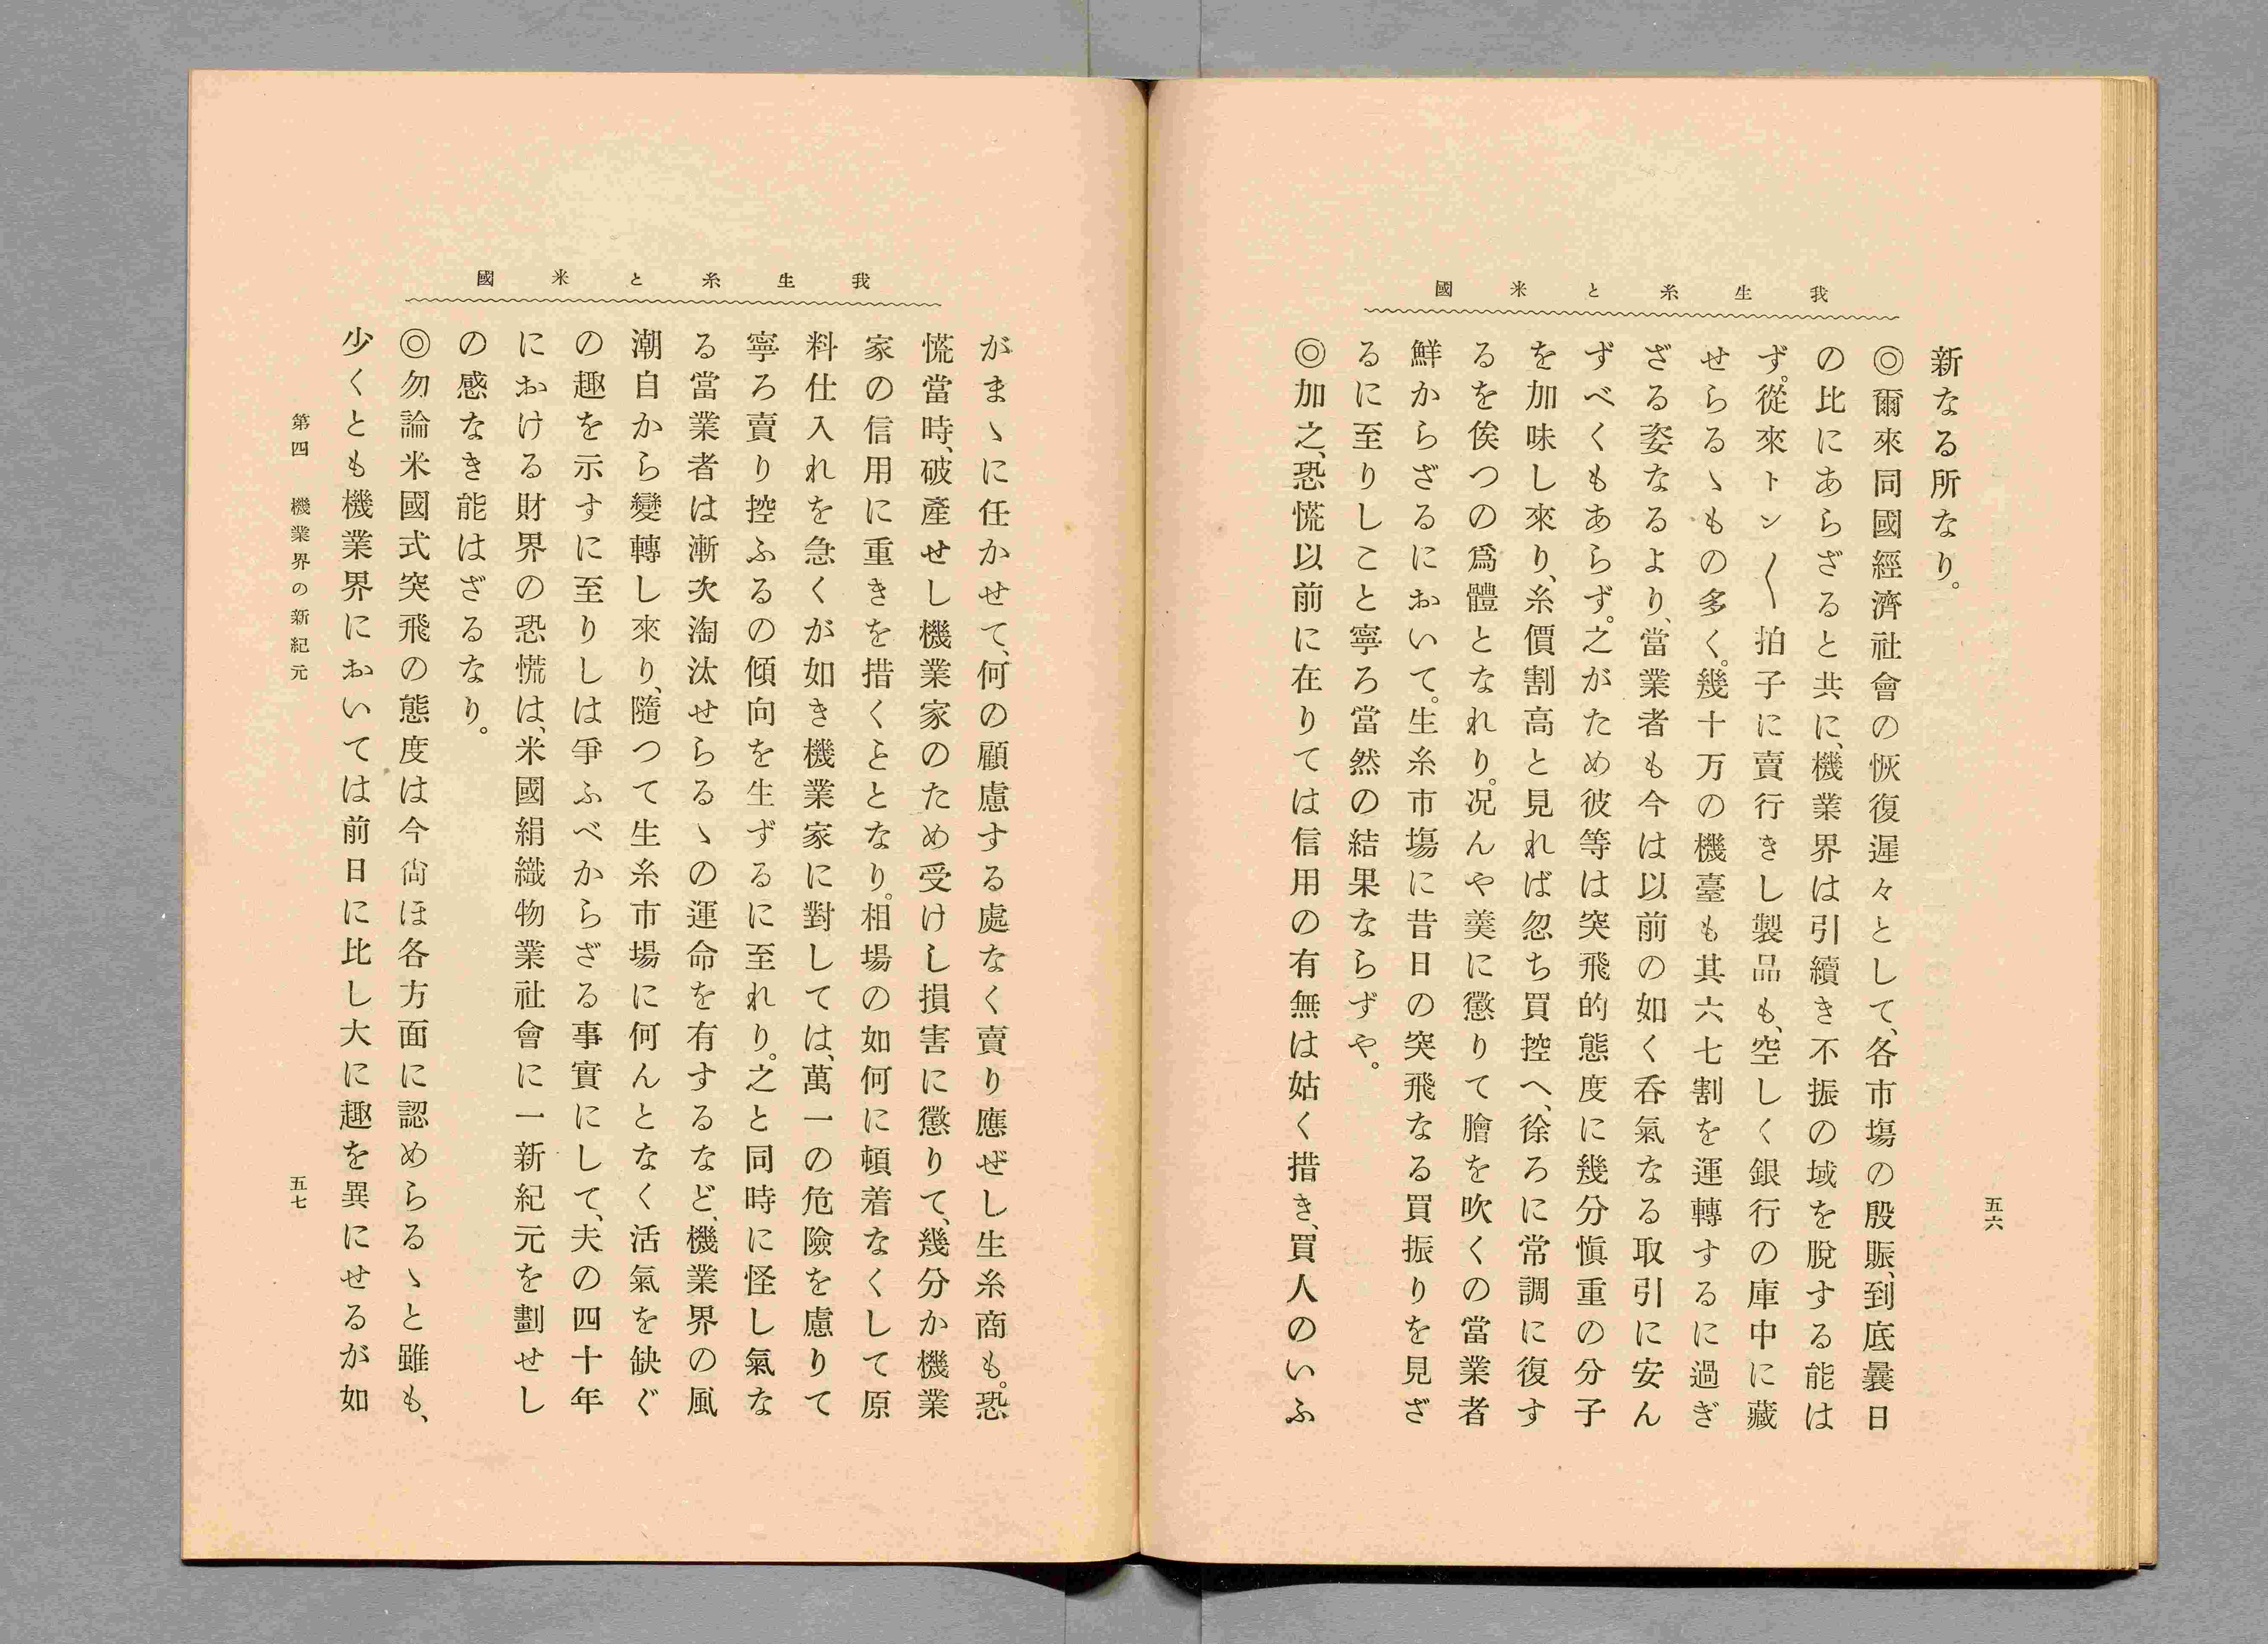 我生糸と米國
新なる所なり。
◎爾來同國經濟社會の恢復遲々として、各市塲の殷賑、到底曩日
の比にあらざると共に、機業界は引續き不振の域を脫する能は
ず。從來トン〱拍子に賣行きし製品も、空しく銀行の庫中に藏
せらるゝもの多く。幾十万の機臺も其六七割を運轉するに過ぎ
ざる姿なるより、當業者も今は以前の如く呑氣なる取引に安ん
ずべくもあらず。之がため彼等は突飛的態度に幾分愼重の分子
を加味し來り、糸價割高と見れば忽ち買控へ、徐ろに常調に復す
るを俟つの爲體となれり。况んや羮に懲りて膾を吹くの當業者
鮮からざるにおいて。生糸市塲に昔日の突飛なる買振りを見ざ
るに至りしこと寧ろ當然の結果ならずや。
◎加之、恐慌以前に在りては信用の有無は姑く措き、買人のいふ
五六
我生糸と米國
がまゝに任かせて、何の顧慮する處なく賣り應ぜし生糸商も。恐
慌當時、破產せし機業家のため受けし損害に懲りて、幾分か機業
家の信用に重きを措くことなり。相場の如何に頓着なくして原
料仕入れを急くが如き機業家に對しては、萬一の危險を慮りて
寧ろ賣り控ふるの傾向を生ずるに至れり。之と同時に怪し氣な
る當業者は漸次淘汰せらるゝの運命を有するなど、機業界の風
潮自から變轉し來り、隨つて生糸市場に何んとなく活氣を缺ぐ
の趣を示すに至りしは爭ふべからざる事實にして、夫の四十年
における財界の恐慌は、米國絹織物業社會に一新紀元を劃せし
の感なき能はざるなり。
◎勿論米國式突飛の態度は今尙ほ各方面に認めらるゝと雖も、
少くとも機業界においては前日に比し大に趣を異にせるが如
第四　機業界の新紀元
五七